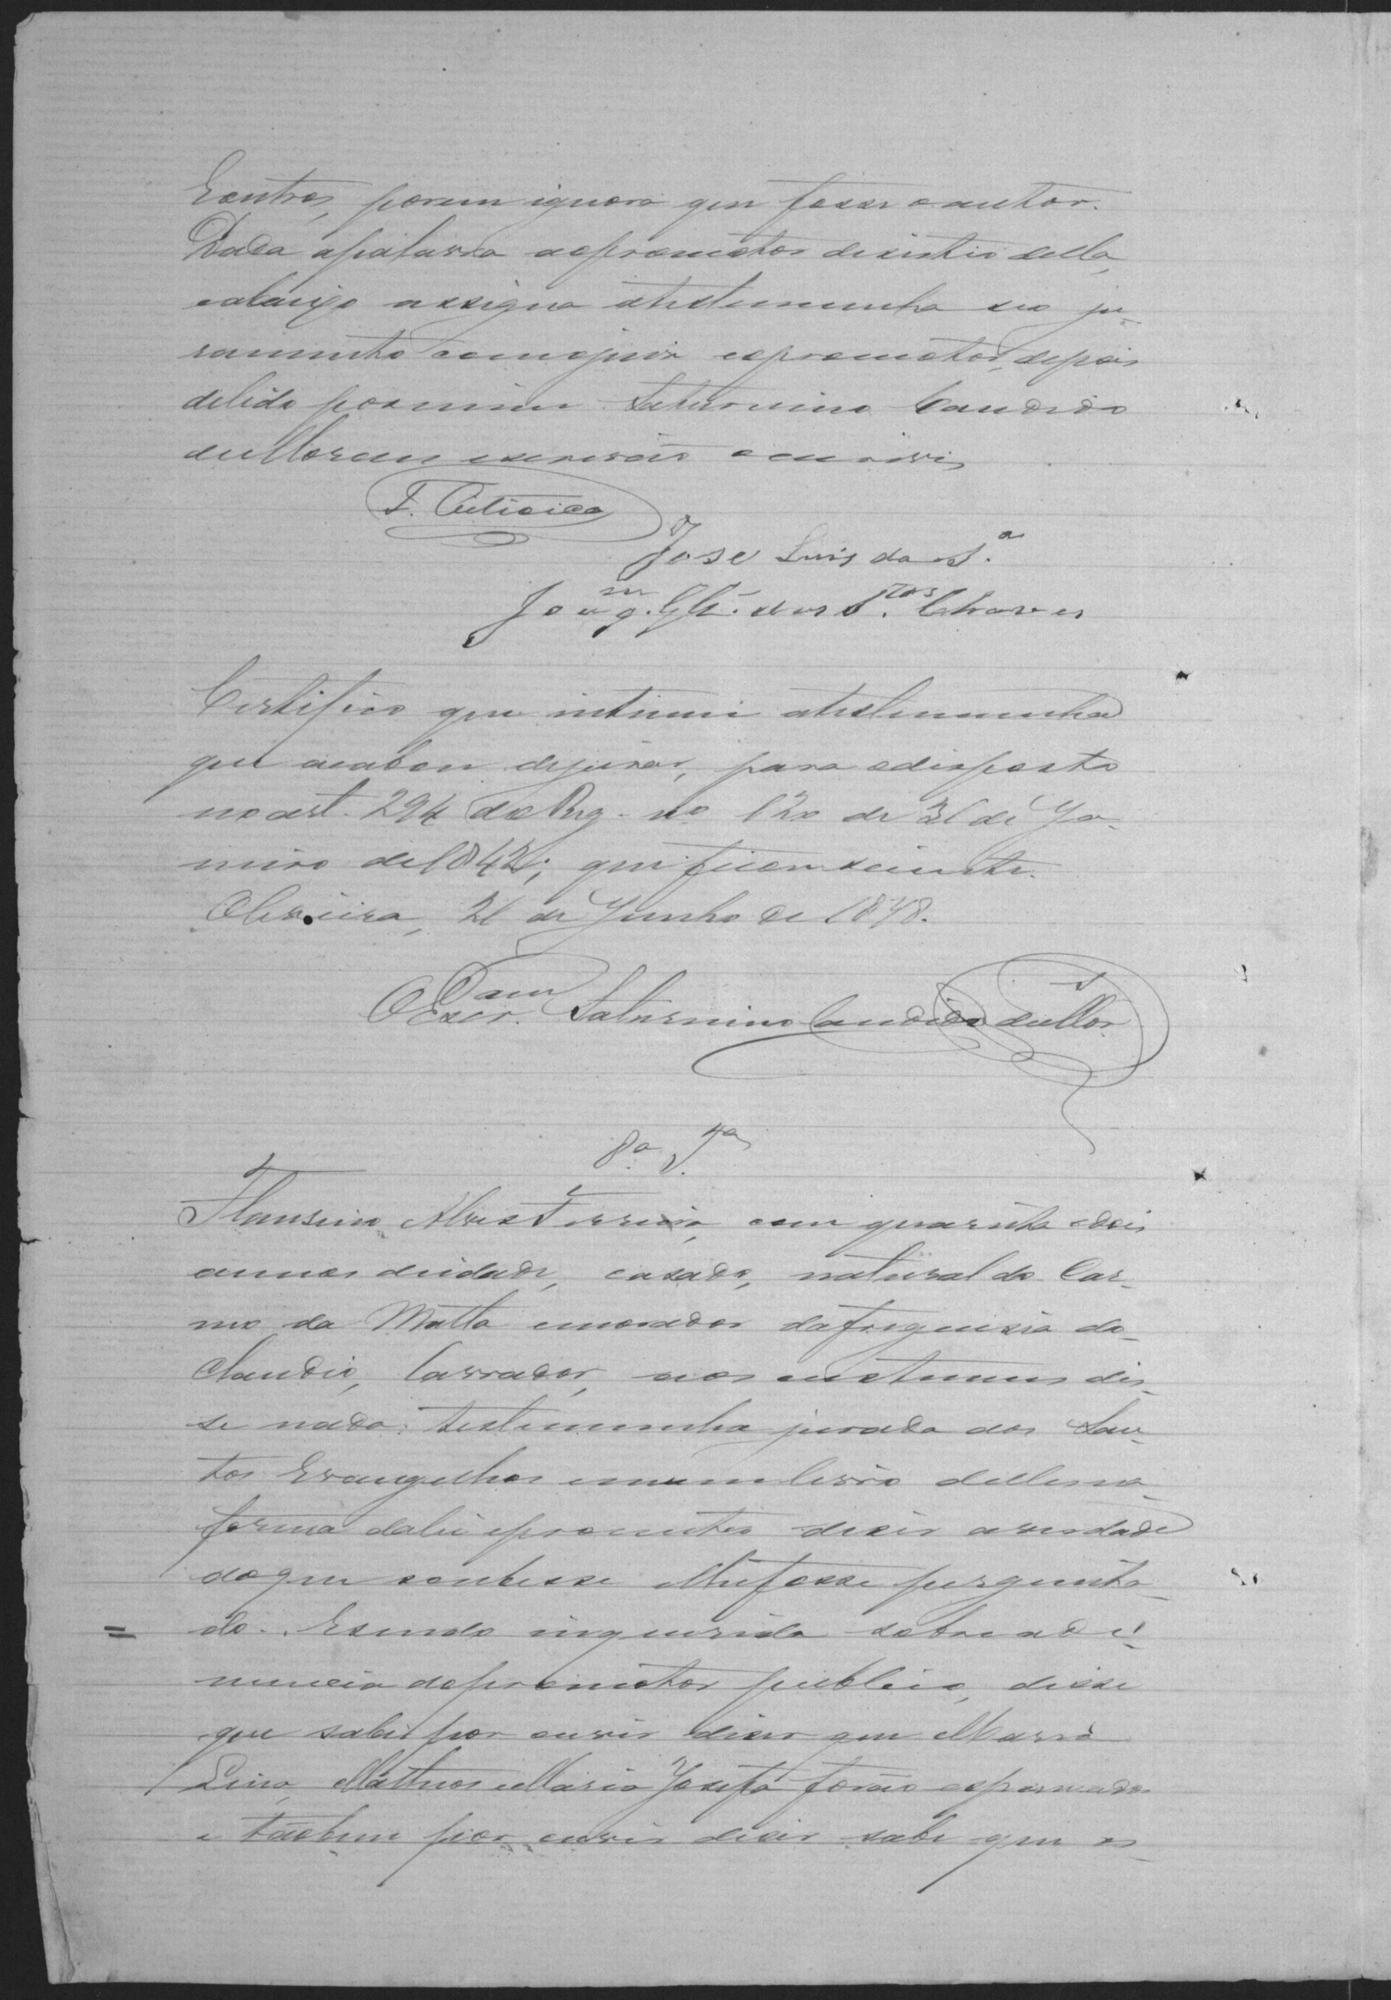 Eoutros, porem ignora qem fosse o autor.
Dada apalavra aopromotor desistio della,
eabaixo assigna atestemunha seo ju-
ramento comojuiz eopromotor, depois
delido pormim Saturnino Candido
deMoraes escrivão oescrevi,
F.
José Luis da S.ª
Joaq.m G.
dos S.tos Chaves
Certifico que intimei atestemunha
que acabou dejurar, para odisposto
noart. 294 do Reg. nº 120 de 31 de Ja-
neiro de1842; que ficou sciente.
Oliveira, 21 de Junho de 1878.
O Escr.
Saturnino Candido deMor.
8ª T.ª
Flausino Alves Ferreira, com quarenta edois
annos deidade, casado, natural do Car-
mo da Matta emorador dafreguesia do
Claudio, lavrador, aos custumes dis-
se nada: testemunha jurada aos San-
tos Evangelhos emum livro dellesna
forma dalei eprometeo dizer averdade
doque soubesse elhefosse pergunta-
do. Esendo inquerida sobre ade-
nuncia dopromotor publico, disse
que sabe por ouvir dizer que Maria
Lina, Matheos eMaria Josefa forão espancados
e tãobem por ouvir dizer sabe que os